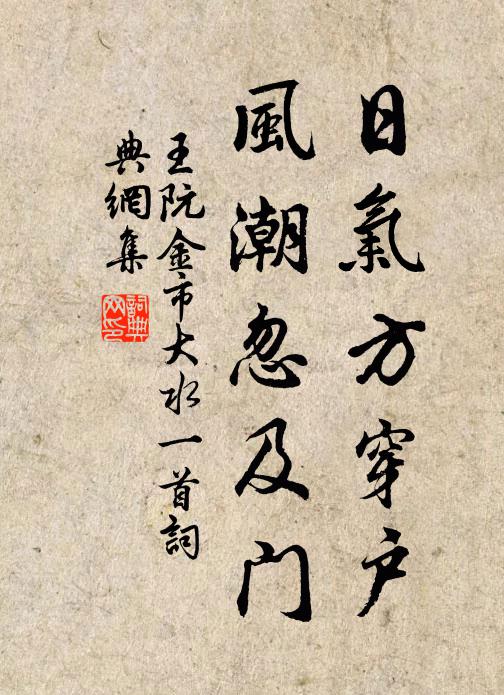 日氣方穿户
風潮忽及门
王阮金市大水一首詞
典網集
詞典网印